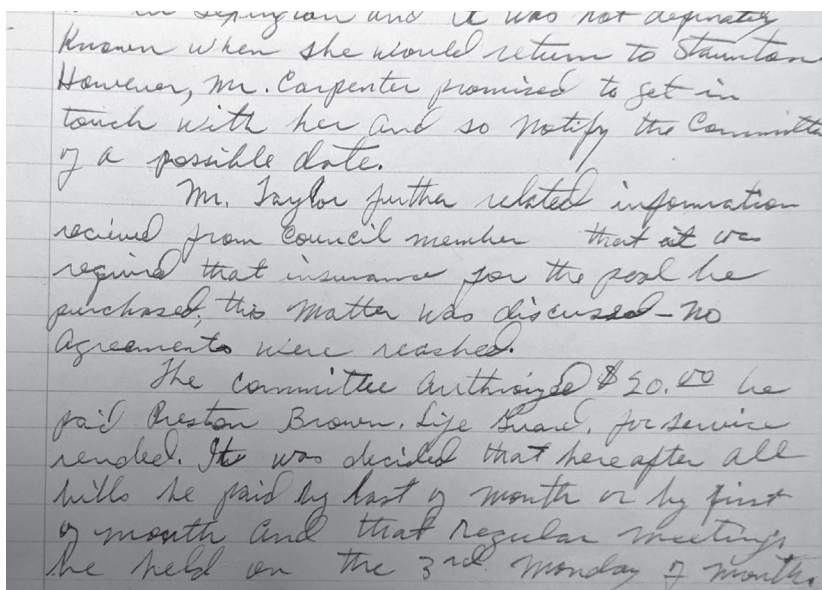 in Lexington and it was not definately
Known when she would return to Staunton
However, Mr. Carpenter promised to get in
touch with her and so notify the Committe
of a possible date.
Mr. Taylor further related information
recieved from Council member that it was
required that insurance for the pool be
purchased; this matter was discussed - no
Agreements were reashed.
The Committee Authorized $20.00 be
paid Preston Brown, Life Guard, for service
rended. It was decided that hereafter all
bills be paid by last of month or by first
of month and that regular meetings
be held on the 3rd Monday of month.